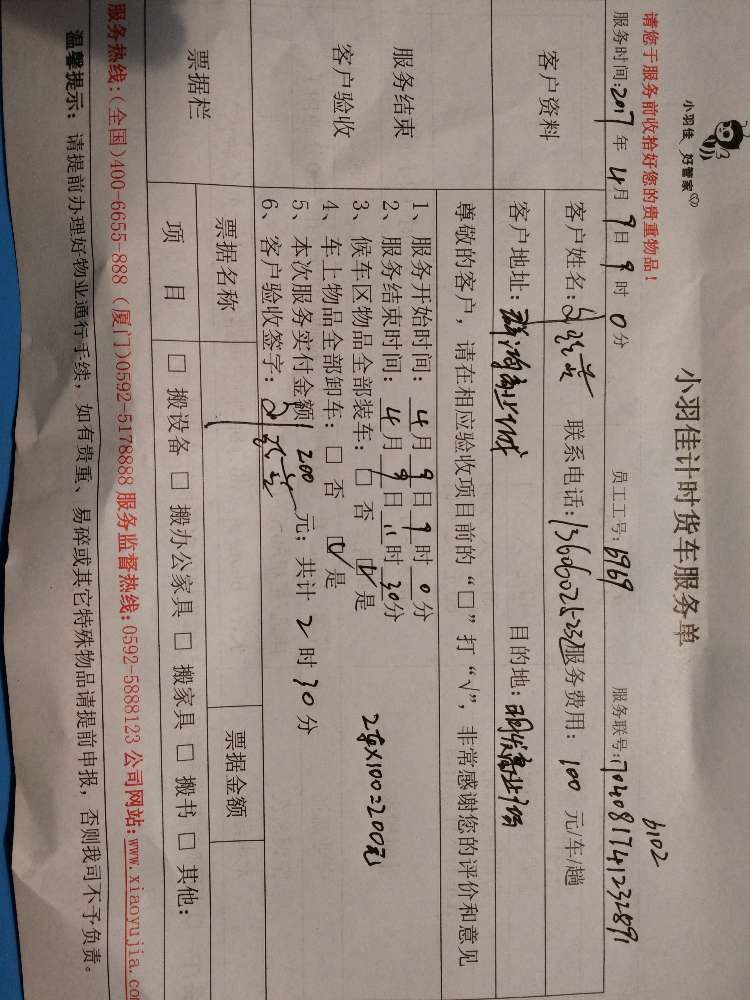 小羽佳 好管家
小羽佳计时货车服务单
请您于服务前收拾好您的贵重物品!
6102
服务时间:2017年4月9日9时0分 员工工号:6969 服务联号:704081741232891
客户资料
客户姓名: 联系电话:13606025232 服务费用:100元/车/趟
客户地址: 商业城 目的地:明发商业广场
尊敬的客户,请在相应验收项目前的“□”打“√”,非常感谢您的评价和意见
服务结束
客户验收
1、服务开始时间:4月9日9时0分
2、服务结束时间:4月9日11时30分
3、候车区物品全部装车:□否 ☑是
4、车上物品全部卸车:□否 ☑是
2车×100=200元
5、本次服务实付金额200元;共计2时30分
6、客户验收签字:
票据栏
票据名称 票据金额
项目 □搬设备 □搬办公家具 □搬家具 □搬书 □其他:
服务热线:(全国)400-6655-888 (厦门)0592-5178888 服务监督热线:0592-5888123 公司网站:www.xiaoyujia.co
温馨提示:请提前办理好物业通行手续,如有贵重、易碎或其它特殊物品请提前申报,否则我司不予负责。